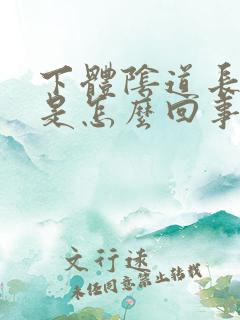 下體陰道長
是怎麼回事
文行速
未经同意禁止转载